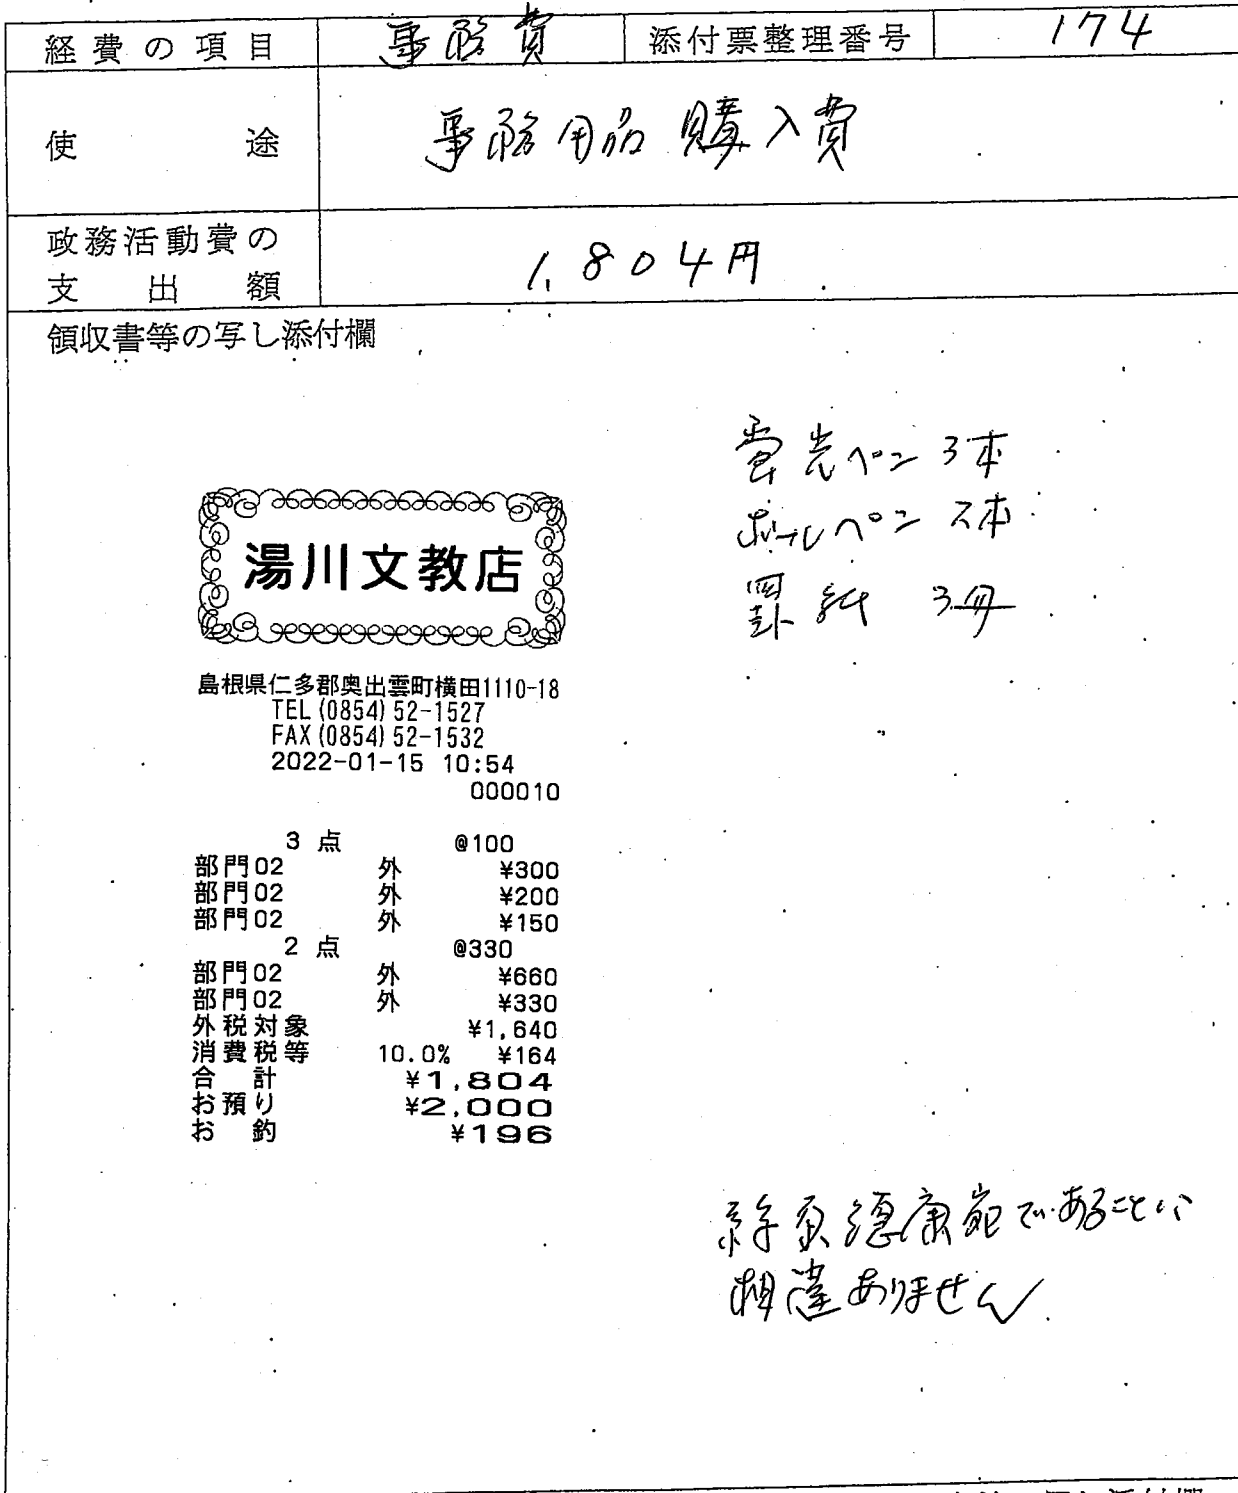 経費の項目 事務費 添付票整理番号 174
使途 事務用品購入費
政務活動費の
支出額 1,804円
領収書等の写し添付欄
蛍光ペン 3本
ボールペン 2本
罫紙 3冊
湯川文教店
島根県仁多郡奥出雲町横田1110-18
TEL(0854)52-1527
FAX(0854)52-1532
2022-01-15 10:54
000010
3点 @100
部門02 外 ¥300
部門02 外 ¥200
部門02 外 ¥150
2点 @330
部門02 外 ¥660
部門02 外 ¥330
外税対象 ¥1,640
消費税等 10.0% ¥164
合計 ¥1,804
お預り ¥2,000
お釣 ¥196
絲原德康宛であることに
相違ありません